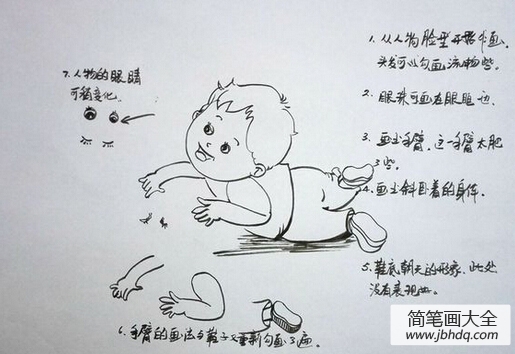 1. 从人物脸型开始作画,
头发可以勾画流畅些.
2. 眼珠可画在眼脸边.
3. 画出手臂.这一手臂太肥
了些.
4. 画出斜卧着的身体.
5. 鞋底朝天的形象.此处
没有表现出.
6. 手臂的画法与鞋子又重新勾画了一遍.
7. 人物的眼睛
可稍变化.
简笔画大全
www.jbhdq.com